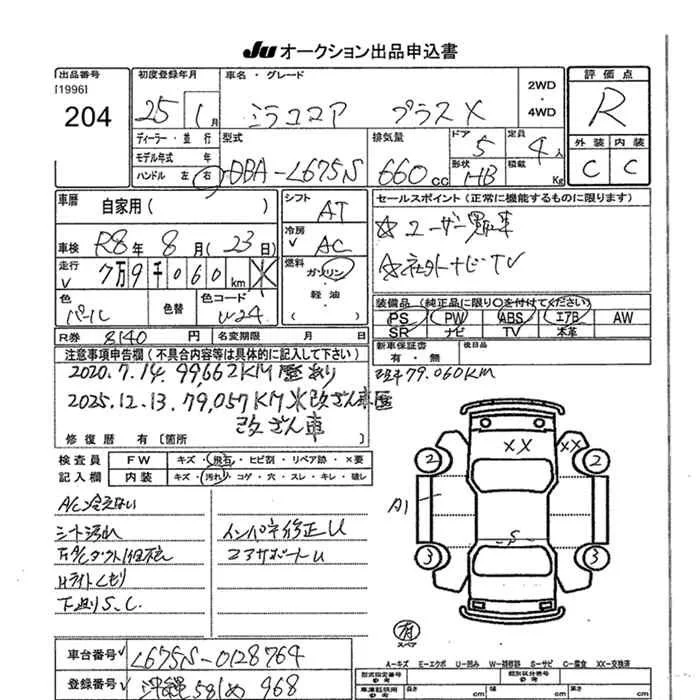 Ju オークション出品申込書
出品番号
[1996]
204
初度登録年月
25年 1月
車名・グレード
ミラココア プラスX
2WD
・
4WD
評価点
R
外装 内装
C C
ディーラー・並行
モデル年式 年
ハンドル 左 右
型式
DBA-L675S
排気量
660cc
ドア
5
定員
4人
形状
HB
積載
Kg
車歴
自家用( )
車検 R8年 8月 (23日)
走行 7万9千060km
色
パール
色替
色コード
W24
シフト
AT
冷房
AC
燃料
ガソリン
・
軽油
・
セールスポイント(正常に機能するものに限ります)
☆ユーザー買取車
☆社外ナビ・TV
装備品(純正品に限り○を付けてください)
PS PW ABS エアB AW
SR ナビ TV 本革
R券 8140円 名変期限 月 日
新車保証書
有・無
後日品
注意事項申告欄(不具合内容等は具体的に記入して下さい)
2020.7.14. 99,662KM 歴あり
2025.12.13. 79,057KM ※改ざん車歴
改ざん車
修復歴 有[箇所 ]
現車79.060KM
検査員
記入欄
FW キズ・飛石・ヒビ割・リペア跡・×要
内装 キズ・汚れ・コゲ・穴・スレ・キレ・破レ
A/C冷えない
シート汚れ
Hライトくもり
下廻りS、C
インパネ修正U
コアサポートU
XX
XX
2
2
A1
S
3
3
有
スペア
A-キズ E-エクボ U-凹み W-補修跡 S-サビ C-腐食 XX-交換済
車台番号 L675S-0128764
登録番号 沖縄 581 め 968
型式指定番号
参考
類別区分番号
参考
長さ
cm
幅
cm
高さ
cm